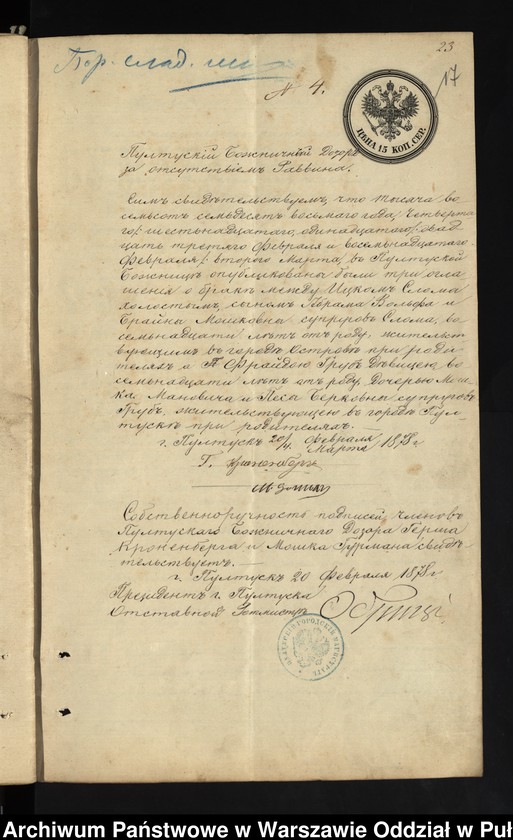 23
17
Пор. слад.
№ 4.
ЦѢНА 15 КОП. СЕР.
Пултускій Божничный Дозоръ
за отсутствіемъ Раввина.
Симъ свидѣтельствуемъ, что тысяча во
семьсотъ семьдесятъ восьмаго года, четверта
го /: шестьнадцатаго, одинадцатаго /: двад
цать третьяго Февраля и восемьнадцатаго
Февраля /: втораго Марта, въ Пултуской
Божницѣ опубликованы были три огла
шенія о бракѣ между Ицкомъ Слома
холостымъ, сыномъ Абрама Вольфа и
Брайны Мошковны супруговъ Слома, во
семьнадцати лѣтъ отъ роду, жительст
вующимъ въ городѣ Островѣ при роди
теляхъ а Фрайдою Грубъ Дѣвицею, во
семьнадцати лѣтъ отъ роду, Дочерью Мош
ка Мановича и Песы Берковны супруговъ
Грубъ, жительствующею въ городѣ Пул
тускѣ при родителяхъ.—
г. Пултускъ 20/4 Февраля/Марта 1878 г
Г.
Собственноручность подписей Членовъ
Пултускаго Божничнаго Дозора Герша
Кроненберга и Мошка Гурмана свидѣ
тельствуетъ.—
г. Пултускъ 20 Февраля 1878 г
Президентъ г. Пултуска
Отставной Ротмистръ
Archiwum Państwowe w Warszawie Oddział w Puł